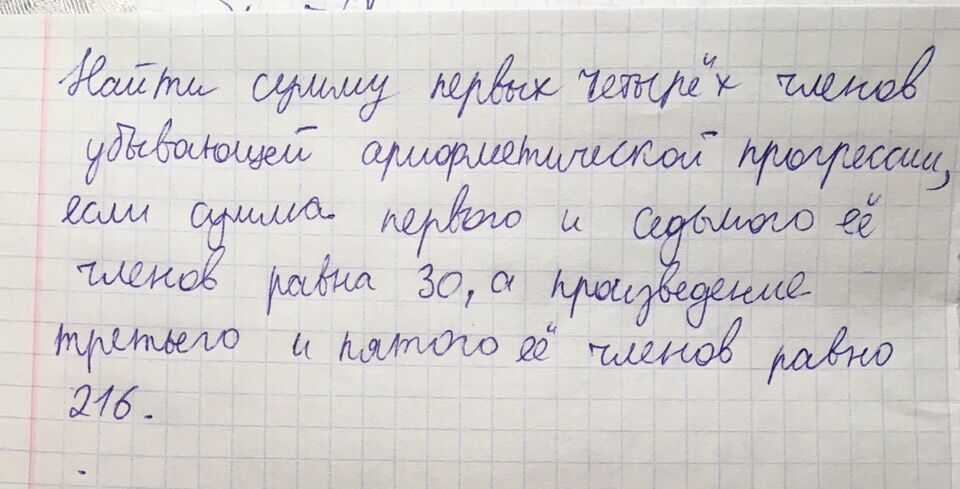 Найти сумму первых четырёх членов
убывающей арифметической прогрессии,
если сумма первого и седьмого её
членов равна 30, а произведение
третьего и пятого её членов равно
216.